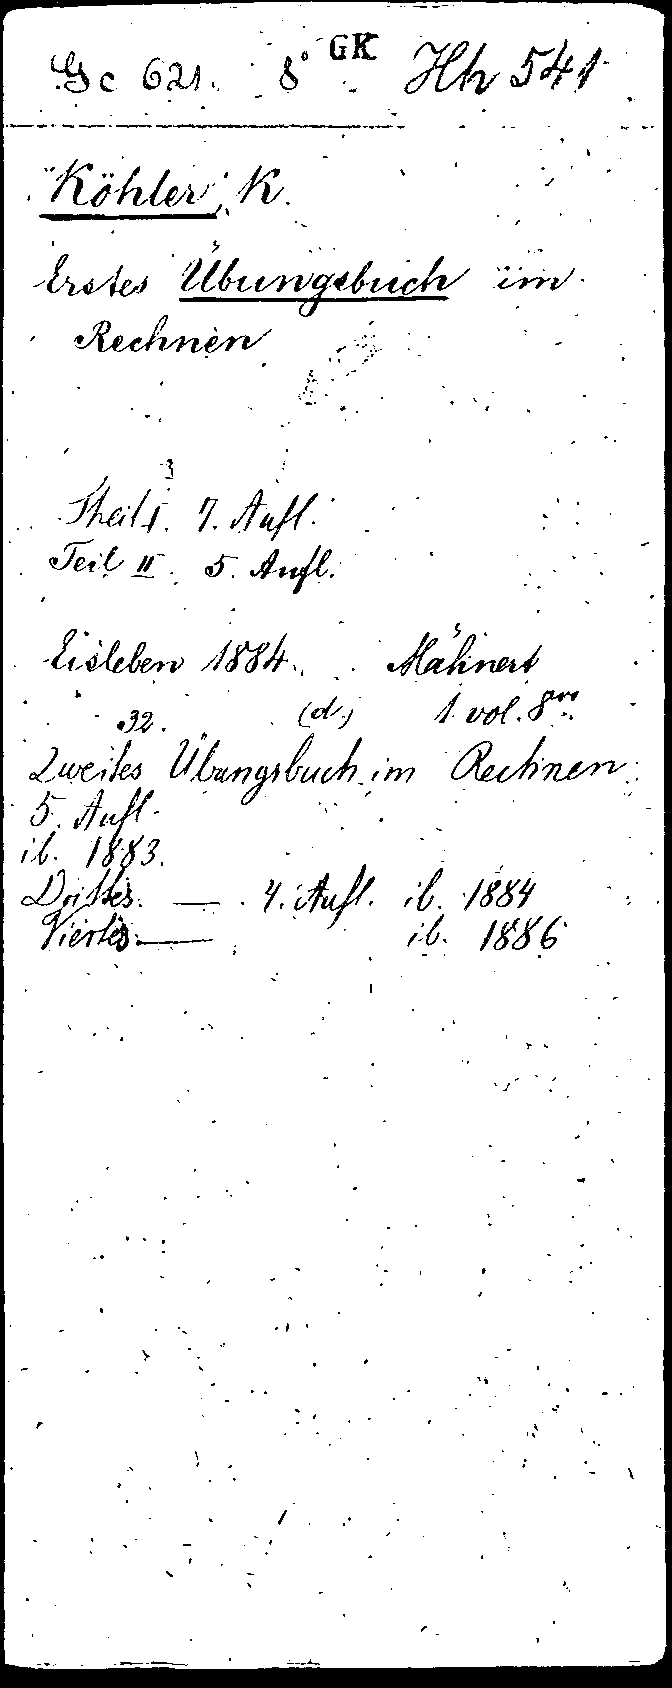 Gc 621. 8° GK Hh 541
Köhler, K.
Erstes Übungsbuch im
Rechnen
Theil I. 7. Aufl.
Teil II. 5. Aufl.
Eisleben 1884. Mähnert
32. (d.) 1 vol. 8vo
Zweites Übungsbuch im Rechnen
5. Aufl.
ib. 1883.
Drittes — 4. Aufl. ib. 1884
Viertes — ib. 1886